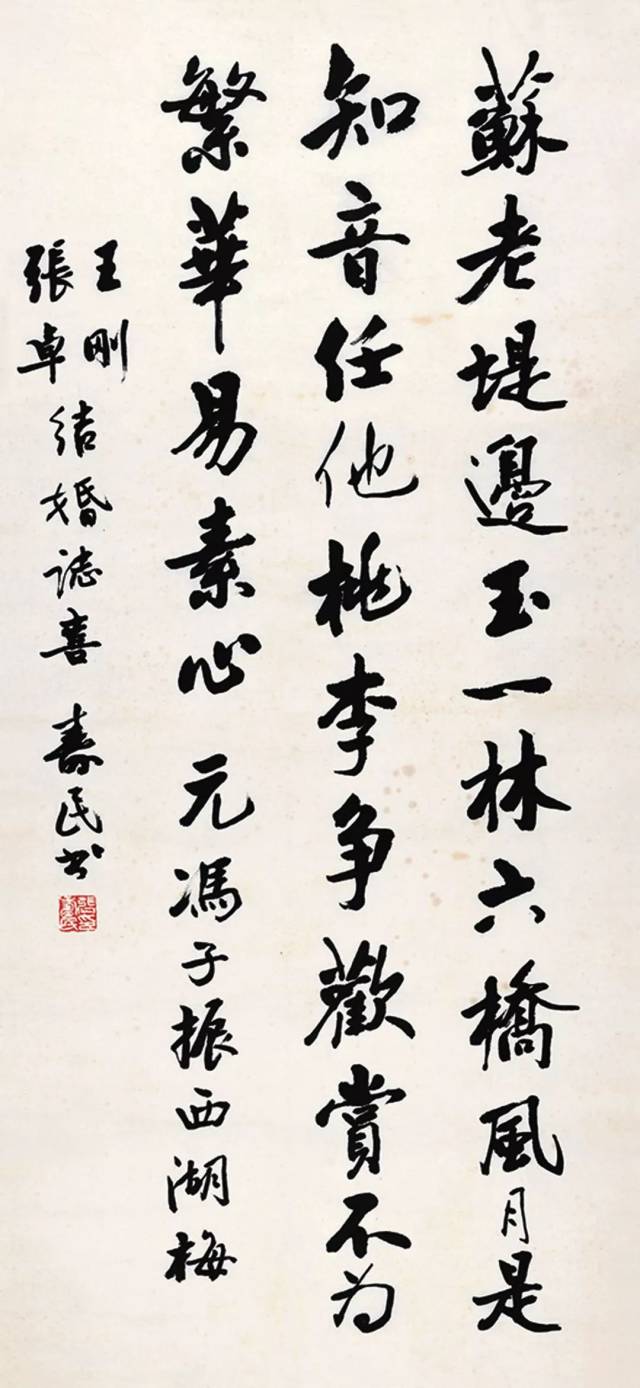 蘇老堤邊玉一林六橋風月是
知音任他桃李争歡賞不为
繁華易素心 元馮子振西湖梅
王刚
張卓
结婚誌喜 壽民书